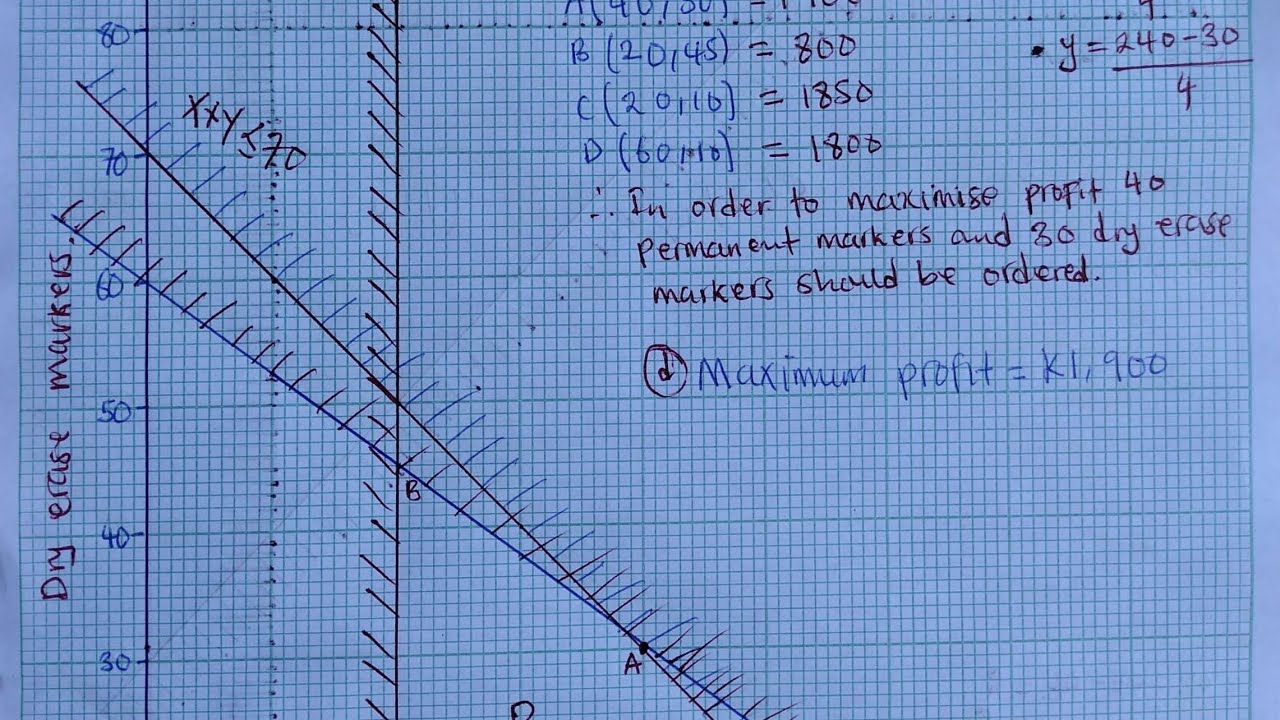 80
B (20,45) = 800
• y = 240-30
4
C (20,10) = 1850
D (60,10) = 1800
X x y ≤ 70
70
∴ In order to maximise profit 40
permanent markers and 30 dry erase
markers should be ordered.
60
Dry erase markers.
(d) Maximum profit = K1,900
50
B
40
30
A